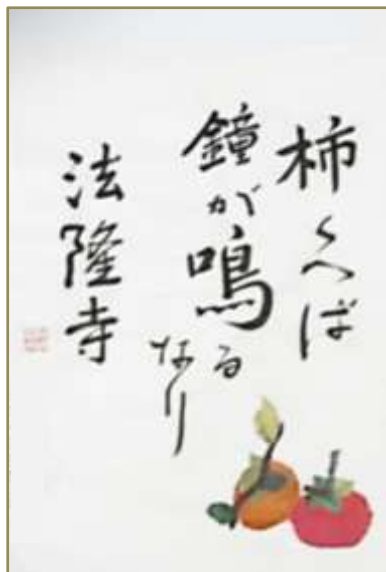 柿くへば
鐘が鳴る
なり
法隆寺